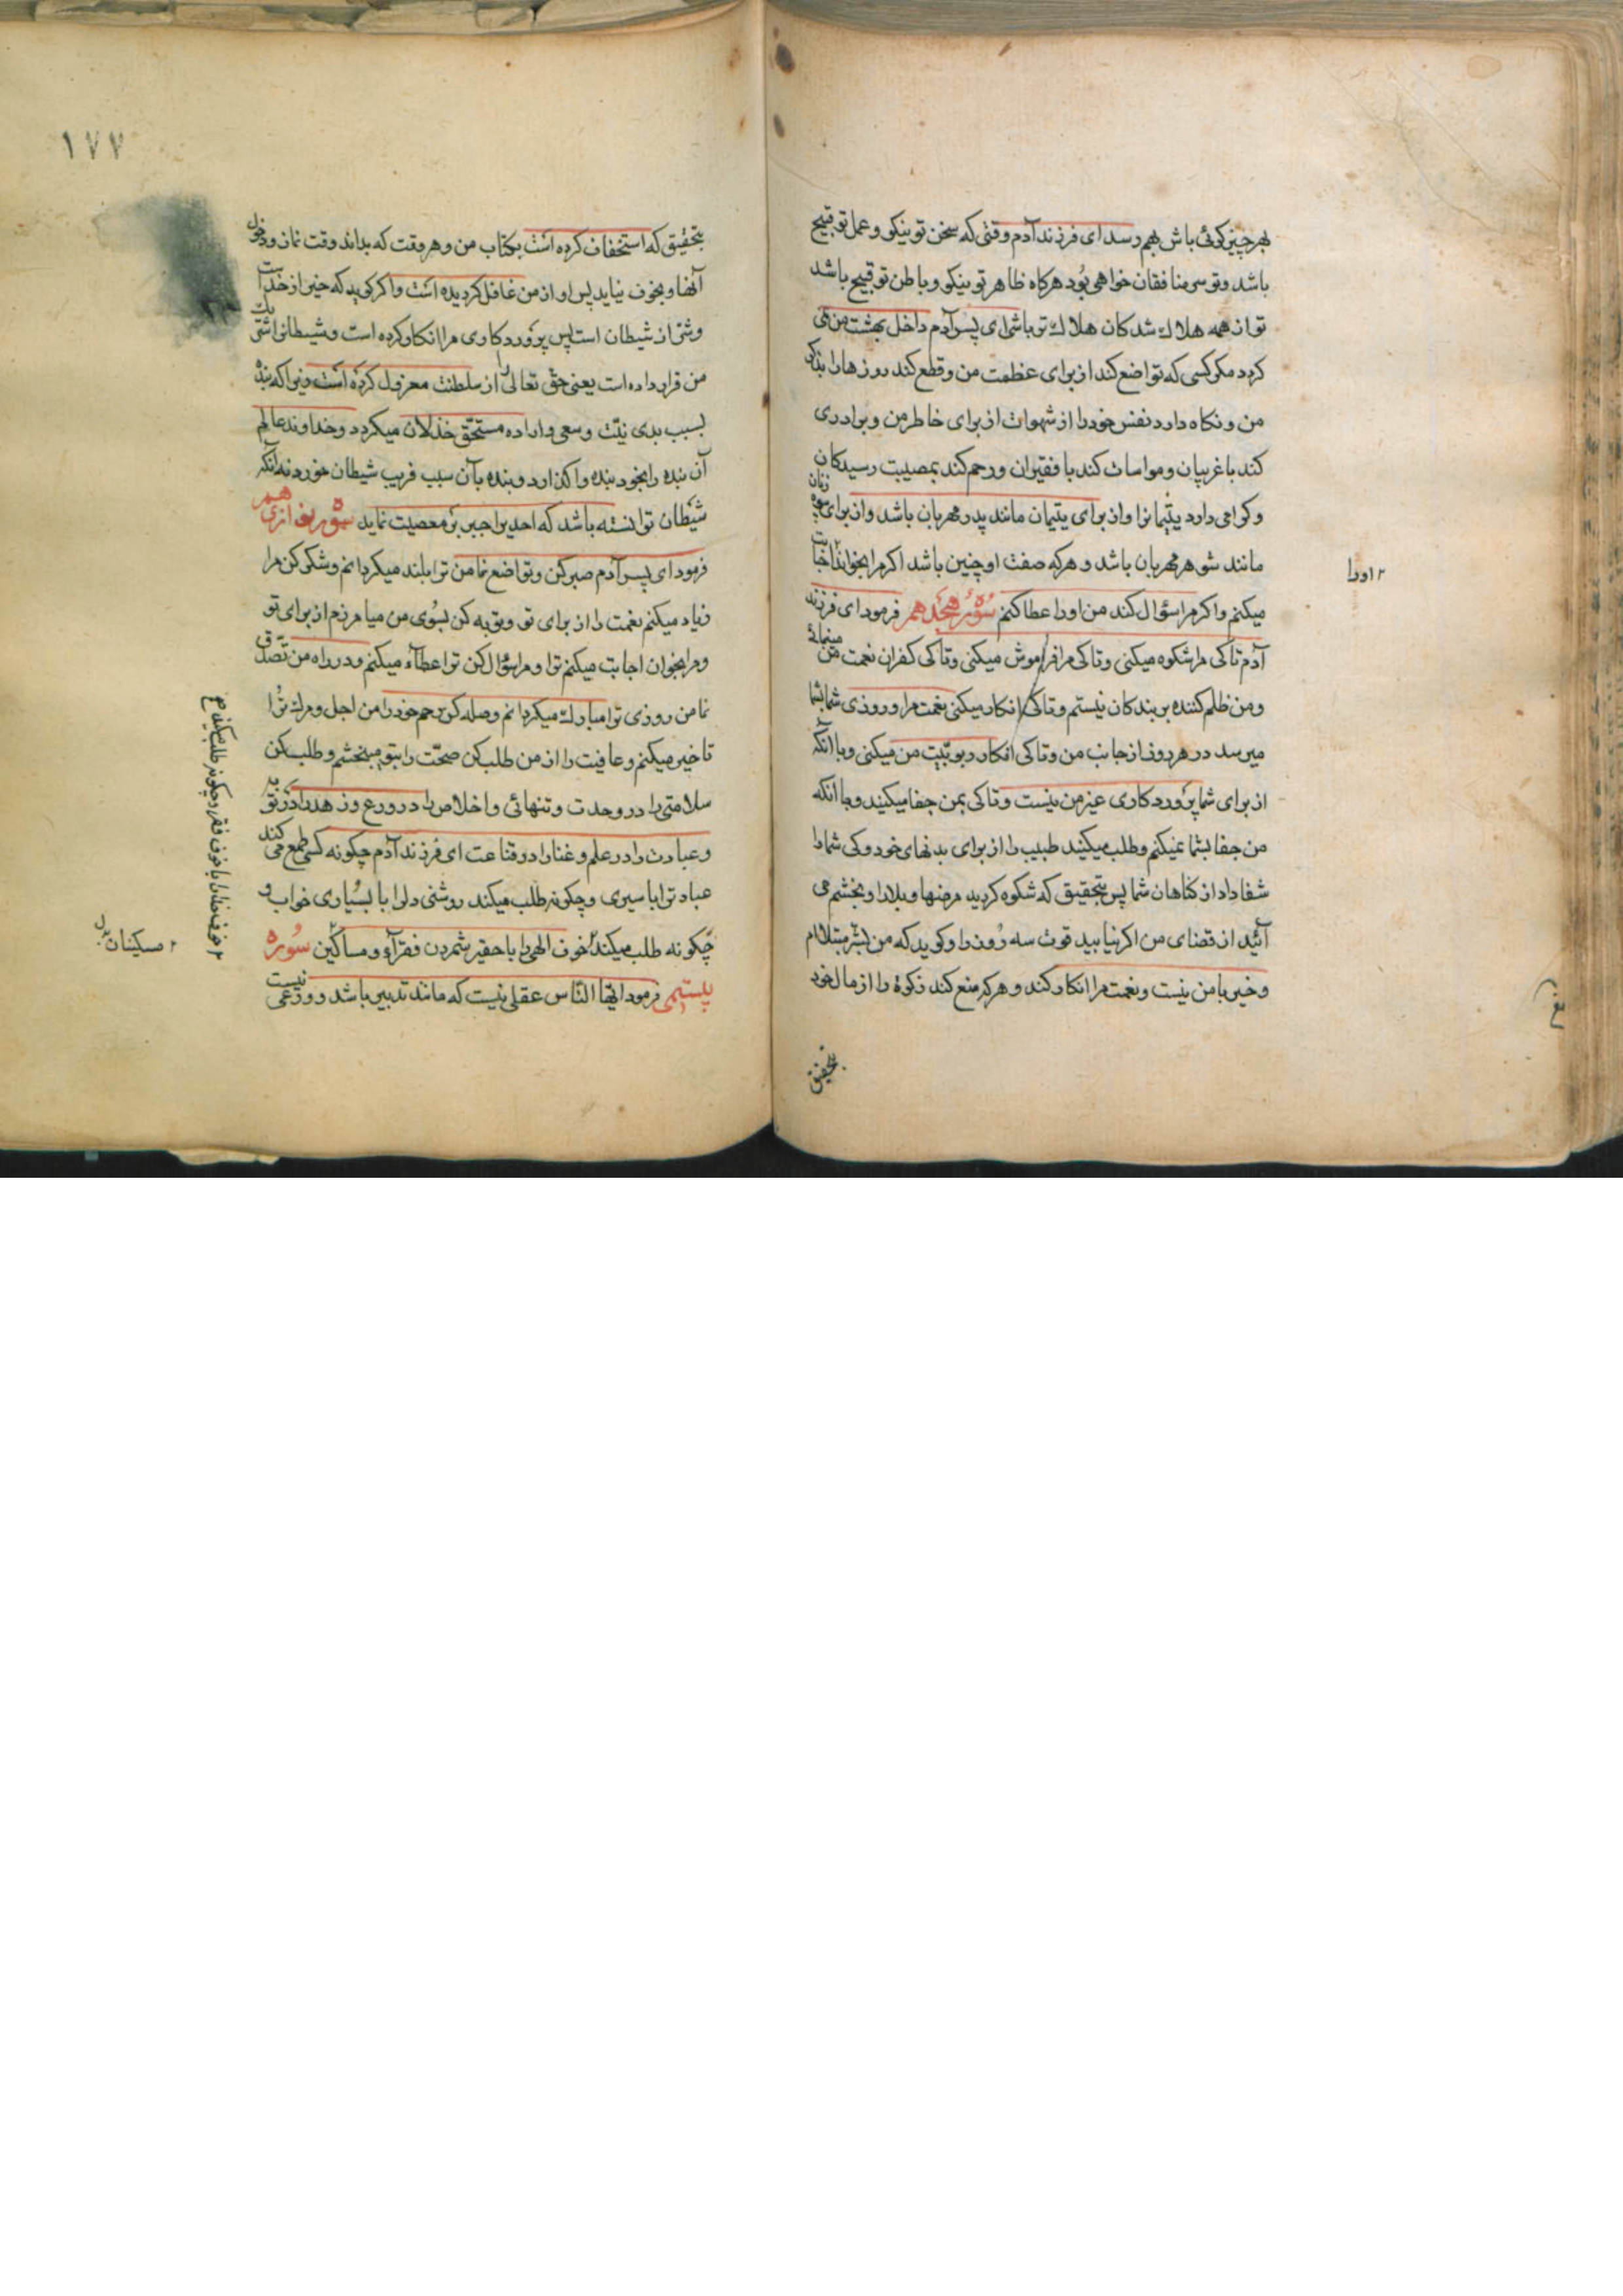 بهر چیز کوئی باش بهم رسد ای فرزند آدم وقتی که سخن تو نیکو و عمل تو قبیح
باشد و تو سر منافقان خواهی بود هرکاه ظاهر تو نیکو و باطن تو قبیح باشد
تو از همه هلاک شدکان هلاک تر باشی ای پسر آدم داخل بهشت من می
کردد مکر کسی که تواضع کند از برای عظمت من و قطع کند روزها را بذکر
من و نکاه دارد نفس خود را از شهوات از برای خاطر من و برادری
کند با غریبان و مواسات کند با فقیران و رحم کند بمصیبت رسیدکان
و کرامی دارد یتیمانرا و از برای یتیمان مانند پدر مهربان باشد و از برای زنان بیوه
مانند شوهر مهربان باشد و هرکه صفت او چنین باشد اکر مرا بخواند اجابت
۲ اورا
میکنم و اکر مرا سؤال کند من اورا عطا کنم سوره هجدهم فرمود ای فرزند
آدم تا کی مرا شکوه میکنی و تا کی مرا فراموش میکنی و تا کی کفران نعمت من مینمائی
و من ظلم کننده بر بندکان نیستم و تا کی انکار میکنی نعمت مرا و روزی شما بشما
میرسد در هر روز از جانب من و تا کی انکار ربوبیّت من میکنی و با آنکه
از برای شما پروردکاری غیر من نیست و تا کی بمن جفا میکنید و با آنکه
من جفا بشما نمیکنم و طلب میکنید طبیب را از برای بدنهای خود و کی شما را
شفا داد از کناهان شما پس بتحقیق که شکوه کردید مرضها و بلا را و بخشم می
آئید از قضای من اکر نیابید قوت سه روز را و کوید که من بشر مبتلا ام
و خیر با من نیست و نعمت مرا انکار کند و هرکه منع کند زکوة را از مال خود
بتحقیق
۱۷۷
بتحقیق که استخفاف کرده است بکتاب من و هر وقت که بداند وقت نماز و دخول
آنها و بخوف نیاید پس او از من غافل کردیده است و اکر کوید که خیر از خداست
و شر از شیطان است پس پروردکاری مرا انکار کرده است و شیطانرا شریک
من قرار داده است یعنی حق تعالی را از سلطنت معزول کرده است و نیز اکه بنده
بسبب بدی نیّت و سعی و اراده مستحقّ خذلان میکردد و خداوند عالم
آن بنده را بخود بنده واکذارد و بنده بآن سبب فریب شیطان خورد نه آنکه
شیطان توانسته باشد که احدیرا جبر بر معصیت نماید سوره نوازدهم
فرمود ای پسر آدم صبر کن و تواضع نما من ترا بلند میکردانم و شکر کن مرا
زیاد میکنم نعمت را از برای تو و توبه کن بسوی من میامرزم از برای تو
و مرا بخوان اجابت میکنم ترا و مرا سؤال کن ترا عطآء میکنم و در راه من تصدّق
نما من روزی ترا مبارک میکردانم و صله کن رحم خود را من اجل و مرک ترا
تاخیر میکنم و عافیت را از من طلب کن صحّت را بتو میبخشم و طلب کن
سلامتی را در وحدت و تنهائی و اخلاص را در ورع و زهد را در توبه
و عبادت را در علم و غنا را در قناعت ای فرزند آدم چکونه کسی طمع می کند
عبادترا با سیری و چکونه طلب میکند روشنی دلرا با بسیاری خواب و
چکونه طلب میکند خوف الهی را با حقیر شمردن فقرآء و مساکین سوره
بیستمی فرمود ایّها النّاس عقلی نیست که مانند تدبیر باشد و ورعی نیست
۲ مسکینان بدل